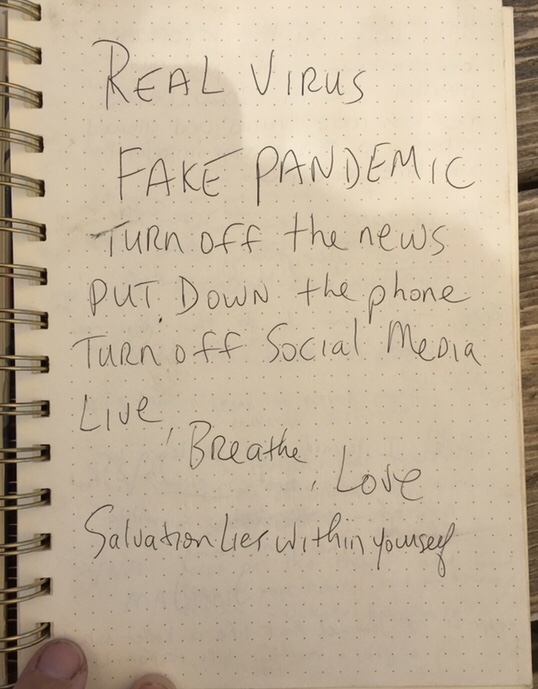 REAL VIRUS
FAKE PANDEMIC
TURN off the news
PUT DOWN the phone
TURN off Social Media
Live,
Breathe
, Love
Salvation Lies within yourself